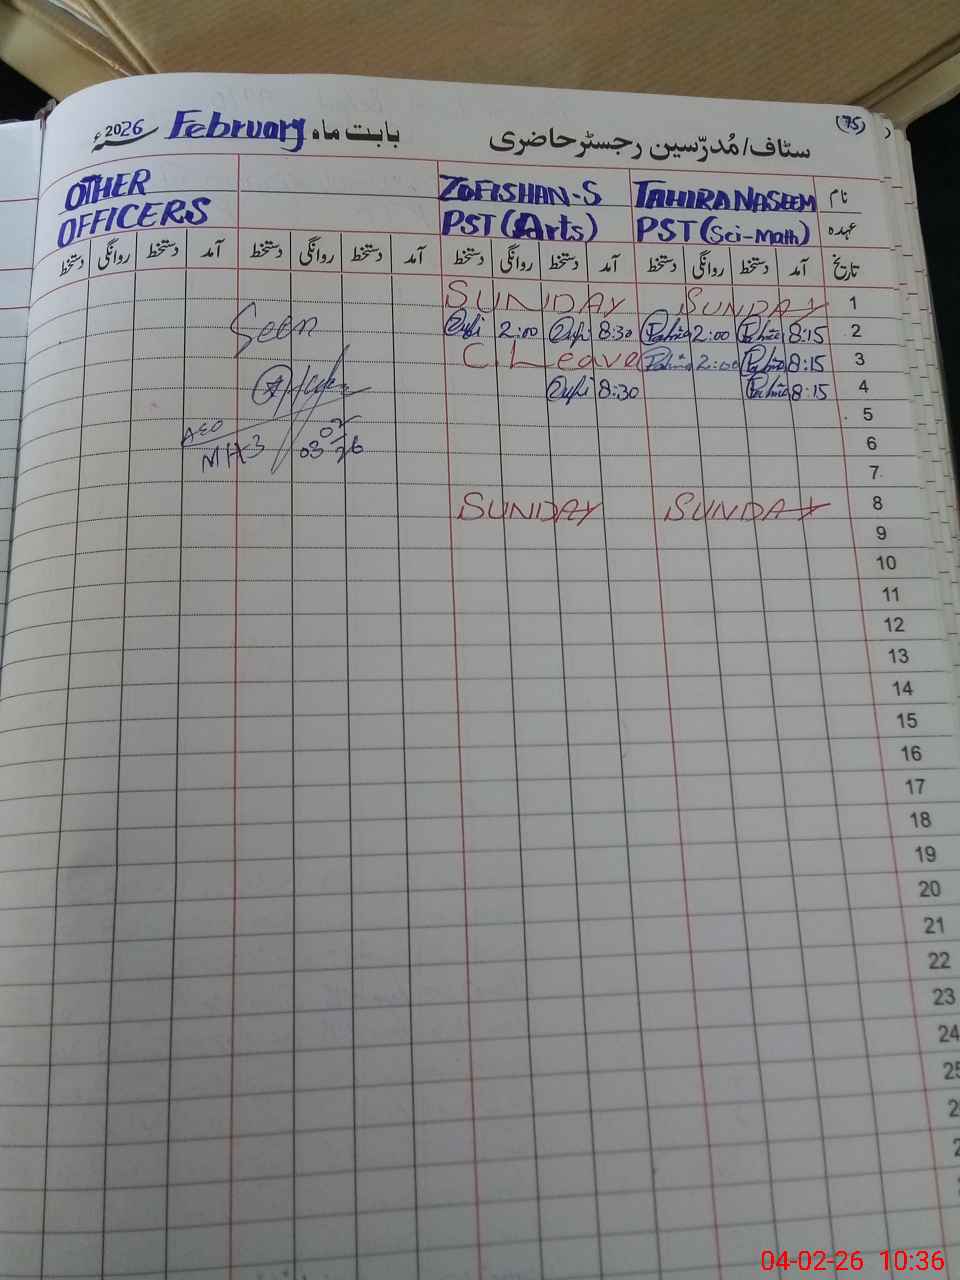 (75)
سٹاف/مُدرّسین رجسٹر حاضری بابت ماہ February 2026ء
نام TAHIRA NASEEM ZOFISHAN-S OTHER
عہدہ PST(Sci-Math) PST(Arts) OFFICERS
تاریخ آمد دستخط روانگی دستخط آمد دستخط روانگی دستخط آمد دستخط روانگی دستخط آمد دستخط روانگی دستخط
1 SUNDAY SUNDAY
2 8:15 2:00 8:30 2:00 Seen
3 8:15 2:00 C.Leave
4 8:15 8:30
5
AEO 02
6
MH3 03 26
7
8 SUNDAY SUNDAY
9
10
11
12
13
14
15
16
17
18
19
20
21
22
23
24
25
2
2
04-02-26 10:36